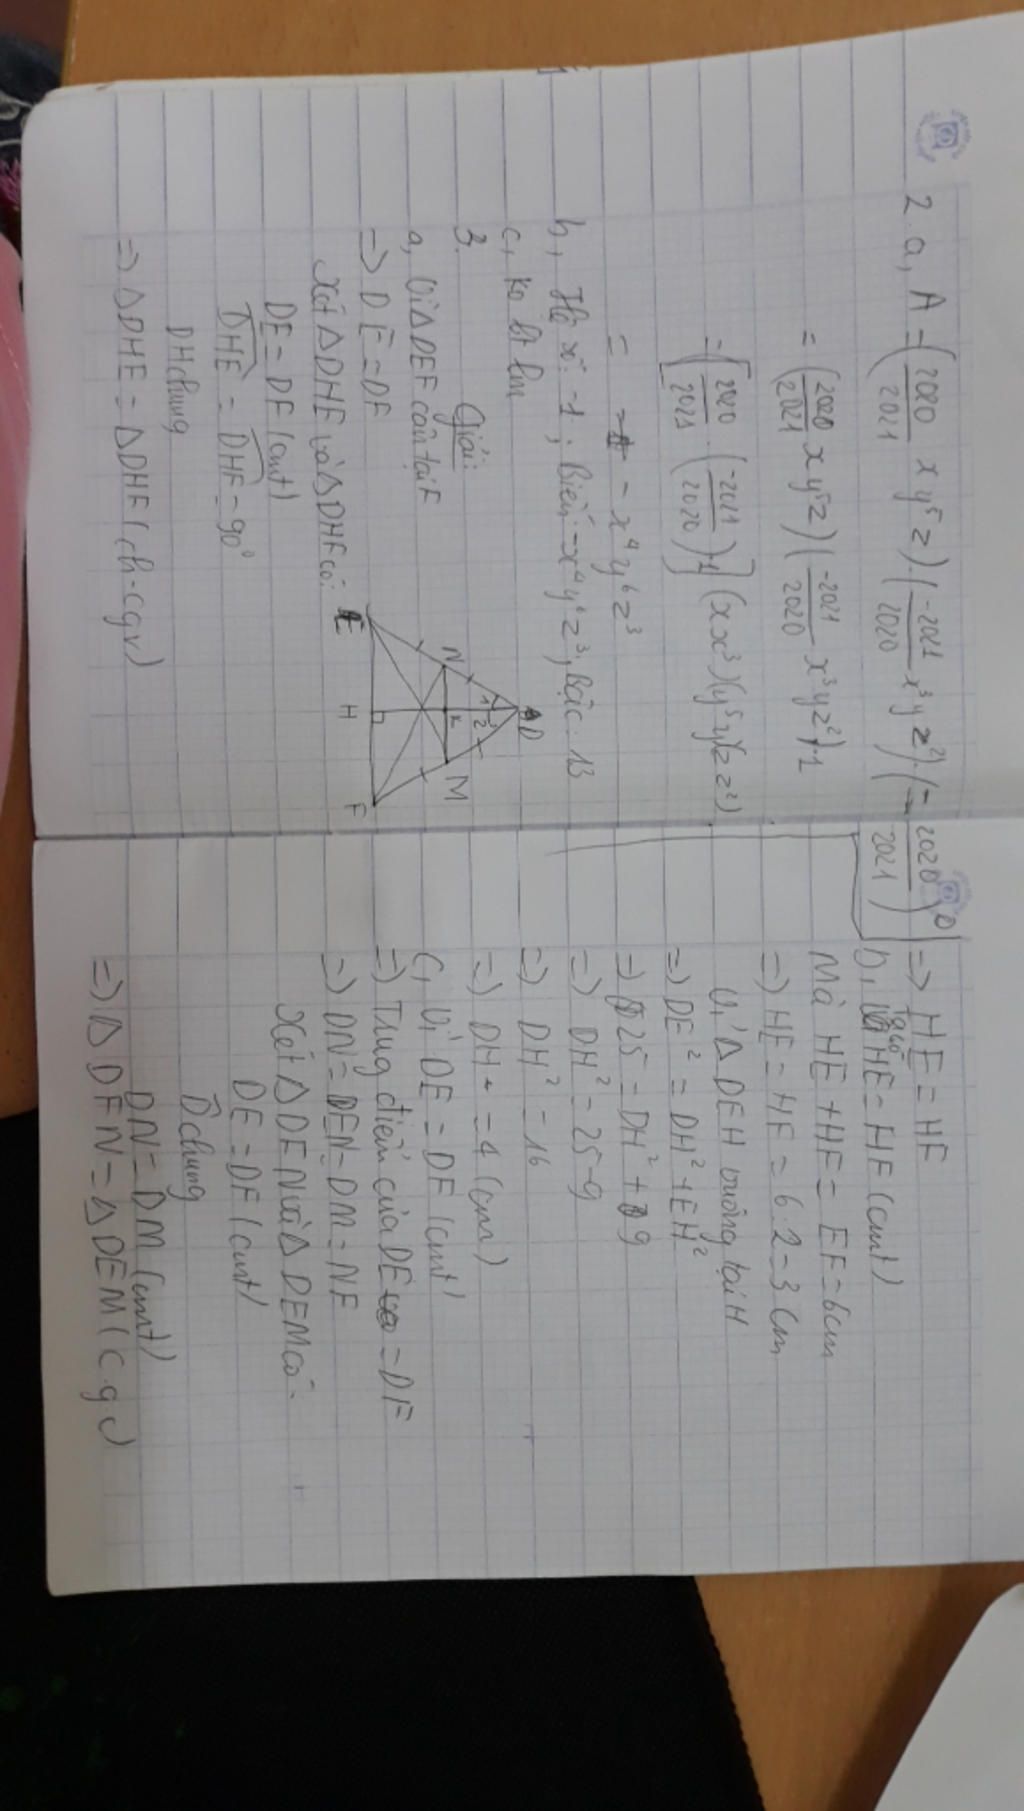 2.a, A = (2020/2021 xy⁵z).(-2021/2020 x³yz²).(-2020/2021)⁰
= (2020/2021 xy⁵z)(-2021/2020 x³yz²).1
= [2020/2021 . (-2021/2020).1] (xx³)(y⁵y)(zz²)
= - x⁴y⁶z³
b, Hệ số: -1; Biến: -x⁴y⁶z³; Bậc: 13
c, ko bt làm
3. Giải:
a, Vì ΔDEF cân tại F
=> DE = DF
Xét ΔDHE và ΔDHF có:
DE = DF (cmt)
DHE = DHF = 90°
DH chung
=> ΔDHE = ΔDHF (ch-cgv)
D
1 2
N K M
E H F
=> HE = HF
b, HE = HF (cmt)
Mà HE + HF = EF = 6cm
=> HE = HF = 6:2 = 3 cm
Vì ΔDEH vuông tại H
=> DE² = DH² + EH²
=> 25 = DH² + 9
=> DH² = 25-9
=> DH² = 16
=> DH = 4 (cm)
C, Vì DE = DF (cmt)
=> Trung điểm của DE = DF
=> DN = EN = DM = NF
Xét ΔDFN và ΔDEM có:
DE = DF (cmt)
D chung
DN = DM (cmt)
=> ΔDFN = ΔDEM (c.g.c)